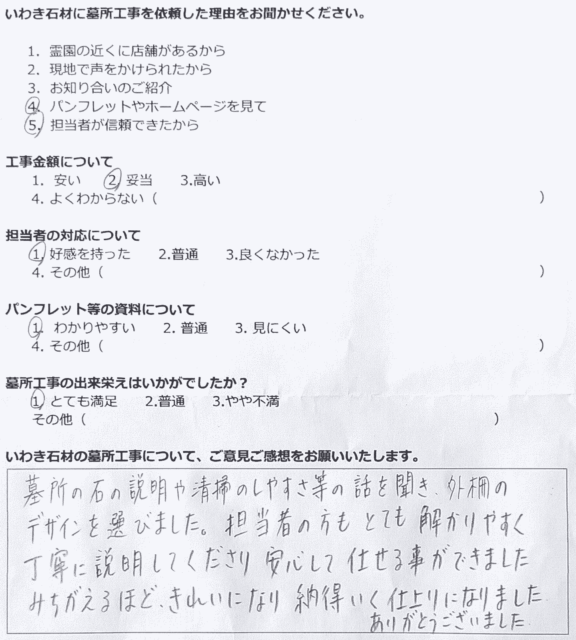 いわき石材に墓所工事を依頼した理由をお聞かせください。
1. 霊園の近くに店舗があるから
2. 現地で声をかけられたから
3. お知り合いのご紹介
4. パンフレットやホームページを見て
5. 担当者が信頼できたから
工事金額について
1. 安い 2. 妥当 3.高い
4. よくわからない( )
担当者の対応について
1. 好感を持った 2.普通 3.良くなかった
4. その他( )
パンフレット等の資料について
1. わかりやすい 2. 普通 3. 見にくい
4. その他( )
墓所工事の出来栄えはいかがでしたか?
1. とても満足 2.普通 3.やや不満
その他( )
いわき石材の墓所工事について、ご意見ご感想をお願いいたします。
墓所の石の説明や清掃のしやすさ等の話を聞き、外柵の
デザインを選びました。担当者の方も とても 解かりやすく
丁寧に説明してくださり 安心して 仕せる事ができました
みちがえるほど、きれいになり 納得いく仕上りになりました
ありがとうございました